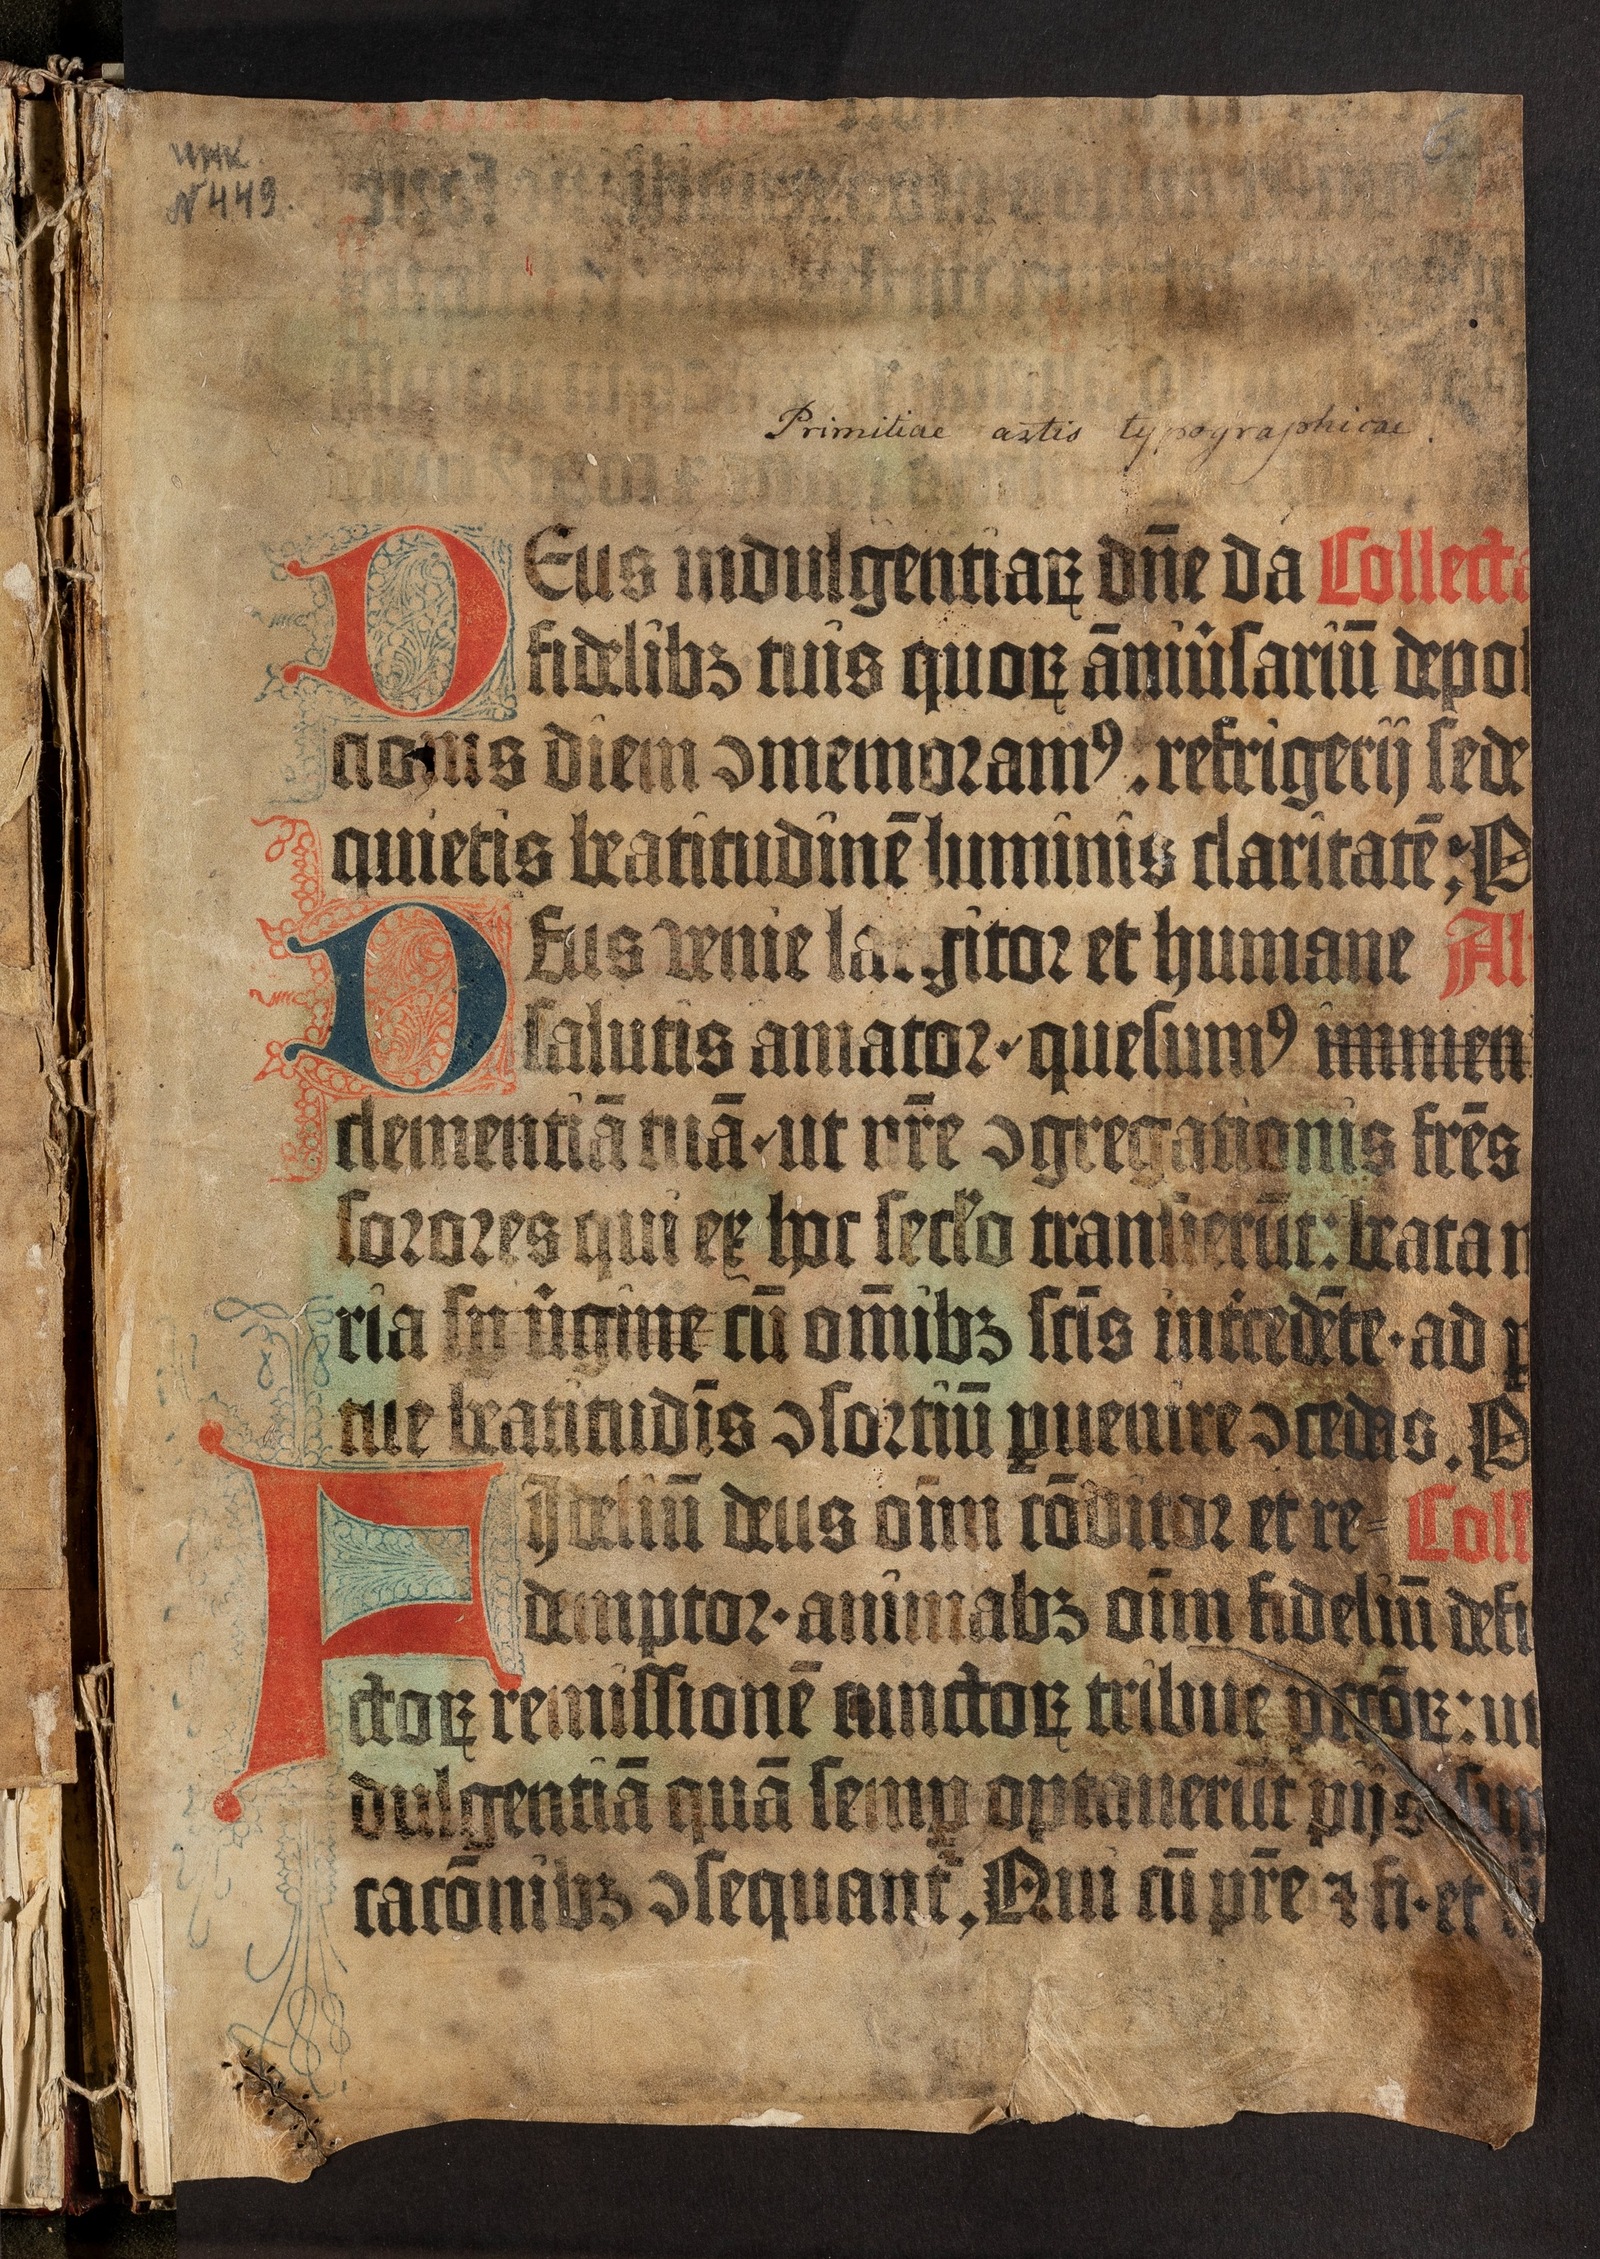 N 449.
6
Primitiae artis typographicae.
DEus indulgentiaꝝ dn̄e da Collecta
fidelibꝫ tuis quoꝝ āniu̇sariū depo
cionis diem ꝯmemoramꝰ . refrigerij sede
quietis beatitudinē luminis claritatē;
DEus venie largitor et humane Al
salutis amator · quesumꝰ immen
clementiā tuā · ut nr̄e ꝯgregationis frēs
sorores qui ex hoc sec̄lo transierūt: beata
ria sp u̇gine cū om̄ibꝫ sc̄is int̓cedēte · ad
tue beatitudīs ꝯsortiū ꝑuenire ꝯcedas.
Fijdeliū deus oīm cōditor et re= Coll
demptor · animabꝫ oīm fideliū defu
ctoꝝ remissionē cunctoꝝ tribue pctōꝝ: ut
dulgentiā quā semꝑ optauerūt pijs sup
cacōnibꝫ ꝯsequant᷑, Qui cū pr̄e ⁊ fi · et